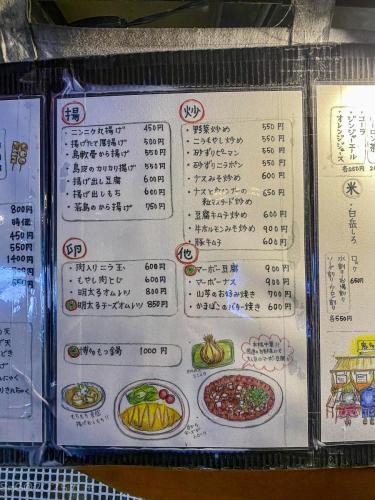 揚
ニンニク丸揚げ 450円
揚げたて厚揚げ 500円
鳥軟骨から揚げ 550円
鳥皮のカリカリ揚げ 550円
揚げ出し豆腐 600円
揚げ出しもち 600円
若鳥のから揚げ 750円
炒
野菜炒め 550円
ニラもやし炒め 550円
砂ずりピーマン 550円
砂ずりニラポン 550円
ナスみそ炒め 600円
ナスとウィンナーの
粒マスタード炒め 600円
豆腐キムチ炒め 600円
牛ホルモンみそ炒め 900円
豚キムチ 600円
卵
肉入りニラ玉 600円
もやし肉とじ 600円
明太子オムレツ 800円
明太子チーズオムレツ 850円
他
マーボー豆腐 900円
マーボーナス 900円
山芋のお好み焼き 700円
かまぼこのバター焼き 600円
博多もつ鍋 1000円
もちもち食感
揚げ出しもち!!
800円
時価
450円
550円
1400円
700円
550円
550円
コーラ
ジンジャーエール
オレンジジュース
各250円
米
白岳しろ
ロック
水割り・お湯割り
ソーダ割り
各550円